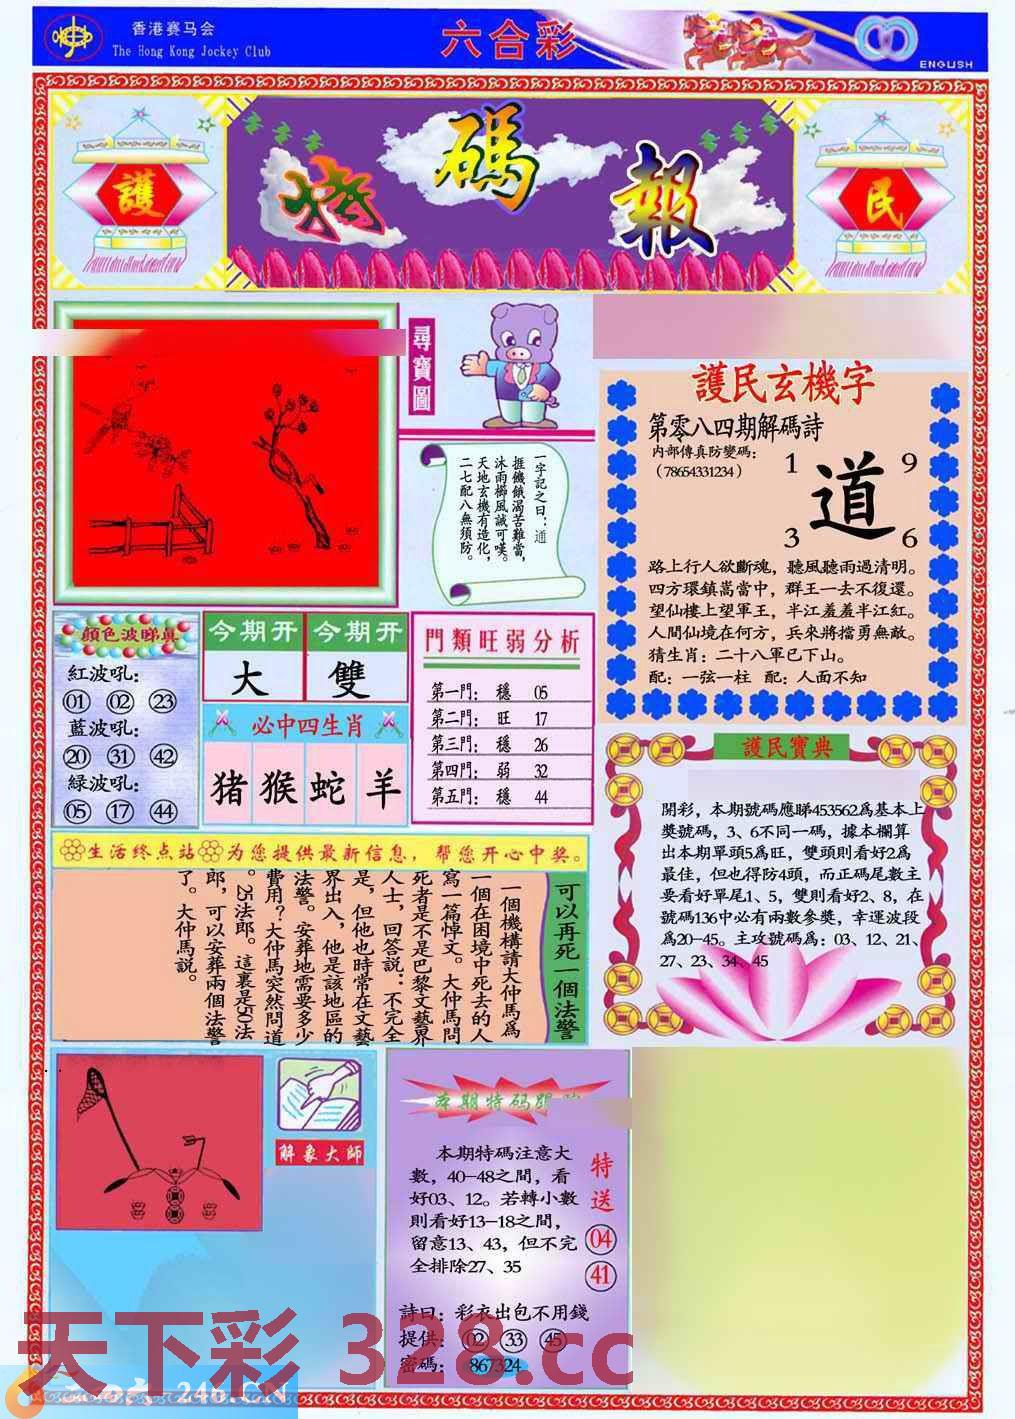 香港赛马会
The Hong Kong Jockey Club
六合彩
ENGLISH
護
特碼報
民
尋寶圖
一字記之曰：道
捱饑餓渴苦難當，
沐雨櫛風誠可嘆。
天地玄機有造化，
二七配八無須防。
護民玄機字
第零八四期解碼詩
内部傳真防變碼：
（78654331234）
1 9
道
3 6
路上行人欲斷魂，聽風聽雨過清明。
四方環鎮嵩當中，群王一去不復還。
望仙樓上望軍王，半江羞羞半江紅。
人間仙境在何方，兵來將擋勇無敵。
猜生肖：二十八軍已下山。
配：一弦一柱 配：人面不知
顏色波睇真
紅波吼：
01 02 23
藍波吼：
20 31 42
綠波吼：
05 17 44
今期开 今期开
大 雙
必中四生肖
猪 猴 蛇 羊
門類旺弱分析
第一門： 穩 05
第二門： 旺 17
第三門： 穩 26
第四門： 弱 32
第五門： 穩 44
護民寶典
開彩，本期號碼應睇453562爲基本上
獎號碼，3、6不同一碼，據本欄算
出本期單頭5爲旺，雙頭則看好2爲
最佳，但也得防4頭，而正碼尾數主
要看好單尾1、5，雙則看好2、8，在
號碼136中必有兩數參獎，幸運波段
爲20-45。主攻號碼爲：03、12、21、
27、23、34、45
生活终点站 为您提供最新信息，帮您开心中奖。
可以再死一個法警
一個機構請大仲馬爲
一個在困境中死去的人
寫一篇悼文。大仲馬問
死者是不是巴黎文藝界
人士，回答説：不完全
是，但他也時常在文藝
界出入，他是該地區的
法警。安葬他需要多少
費用？大仲馬突然問道
。25法郎。這裏是50法
郎，可以安葬兩個法警
了。大仲馬説。
解象大師
本期特码
本期特碼注意大
數，40-48之間，看
好03、12。若轉小數
則看好13-18之間，
留意13、43，但不完
全排除27、35
特送
04
41
詩曰：彩衣出包不用錢
提供： 02 33 45
密碼： 867324
天下彩 328.cc
二四六 246.CN